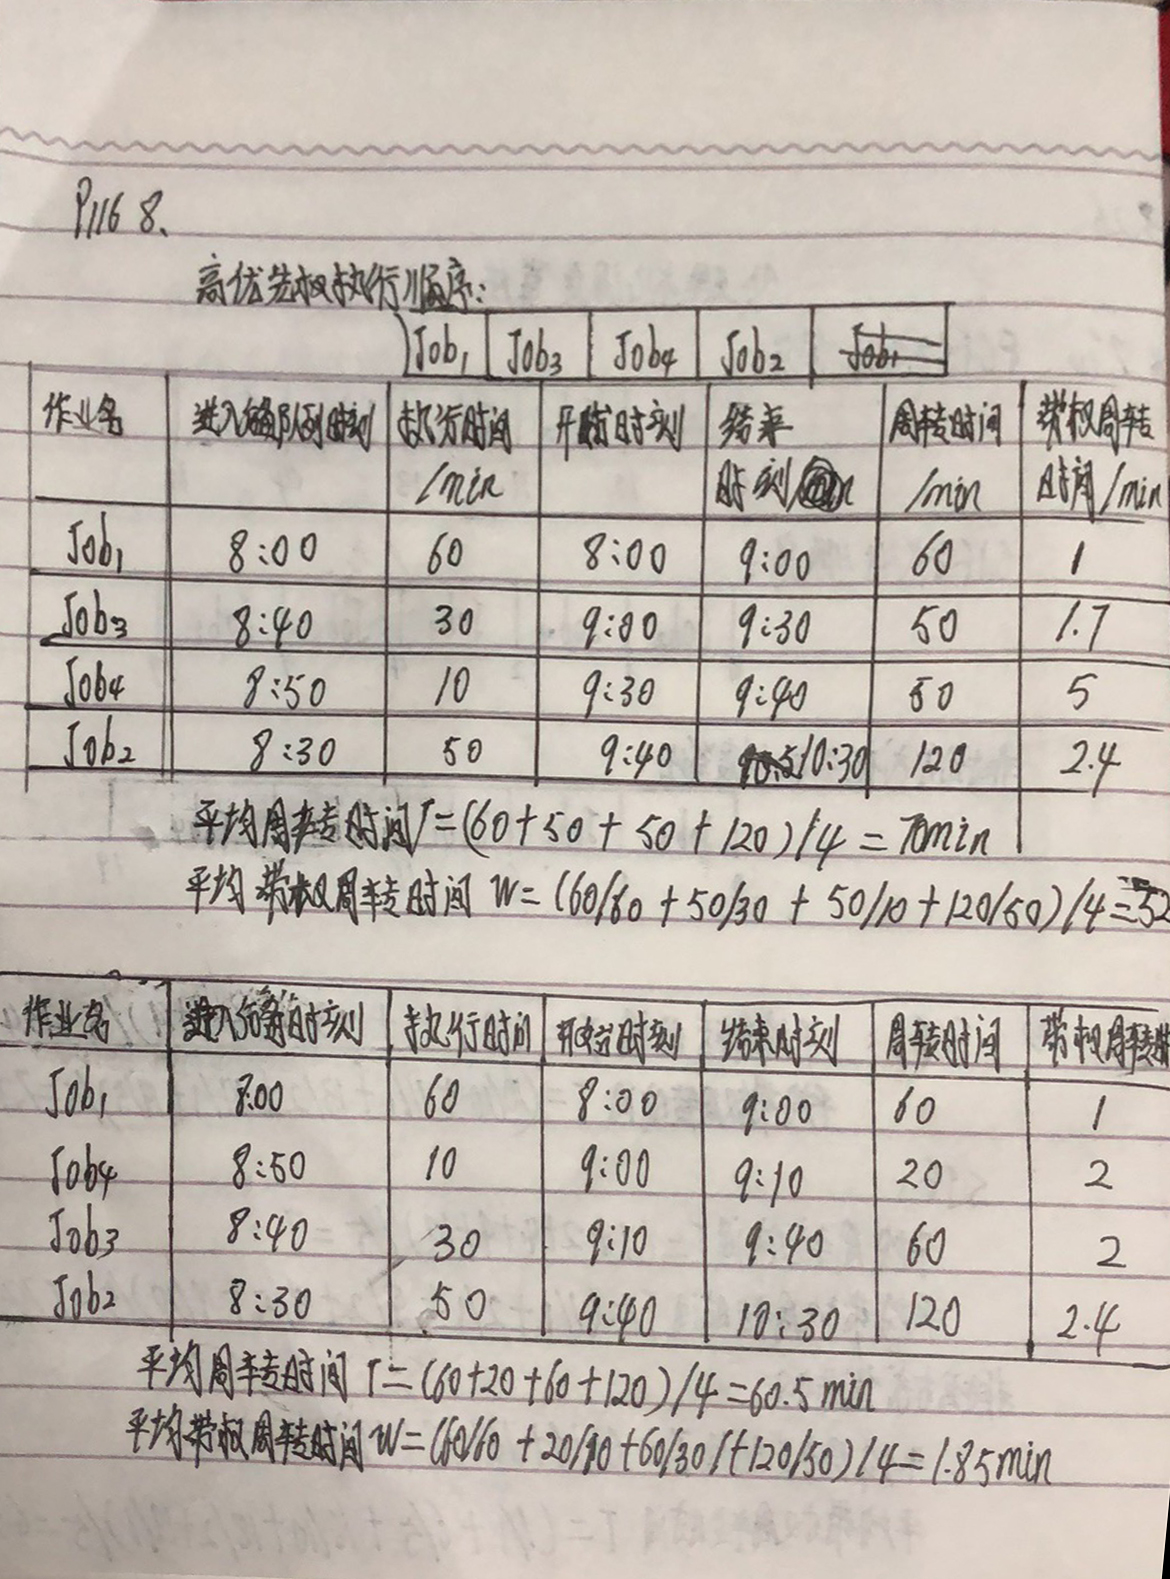 P116 8、
高优先权执行顺序:
Job1 Job3 Job4 Job2
作业名 进入 队列时刻 执行时间/min 开始时刻 结束时刻 周转时间/min 带权周转时间/min
Job1 8:00 60 8:00 9:00 60 1
Job3 8:40 30 9:00 9:30 50 1.7
Job4 8:50 10 9:30 9:40 50 5
Job2 8:30 50 9:40 10:30 120 2.4
平均周转时间T=(60+50+50+120)/4=70min
平均带权周转时间 W=(60/60+50/30+50/10+120/50)/4=
作业名 进入 时刻 执行时间 开始时刻 结束时刻 周转时间 带权周转
Job1 8:00 60 8:00 9:00 60 1
Job4 8:50 10 9:00 9:10 20 2
Job3 8:40 30 9:10 9:40 60 2
Job2 8:30 50 9:40 10:30 120 2.4
平均周转时间 T=(60+20+60+120)/4=60.5min
平均带权周转时间 W=(60/60+20/10+60/30+120/50)/4=1.85min